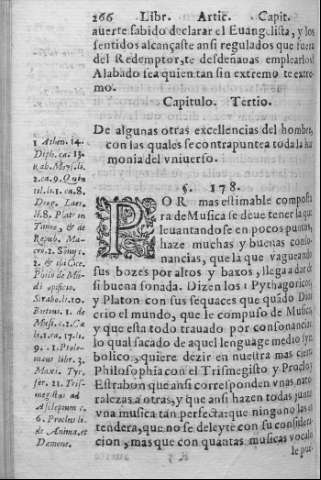 266 Libr. Artic. Capit.
auerte sabido declarar el Euangelista, y los
sentidos alcançaste ansi regulados que fuera
del Redemptor, te desdeñauas emplearlos!
Alabado sea quien tan sin extremo te extre-
mo.
Capitulo. Tertio.
De algunas otras excellencias del hombre,
con las quales se contrapuntea toda la har
monia del vniuerso.
§. 178.
POR mas estimable compostu
ra de Musica se deue tener la que
leuantandose en pocos puntos,
haze muchas y buenas conso-
nancias, que la que vagueando
sus bozes por altos y baxos, llega a dar de
si buena sonada. Dizen los 1 Pythagoricos,
y Platon con sus sequaces que quãdo Dios
crio el mundo, que le compuso de Musica,
y que esta todo trauado por consonancias,
lo qual sacado de aquel lenguage medio sym
bolico, quiere dezir en nuestra mas cierta
Philosophia con el Trismegisto y Proclo y
Estrabon que ansi corresponden vnas natu-
ralezas a otras, y que ansi hazen todas juntas
vna musica tan perfecta: que ninguno las en-
tendera, que no se deleyte con su considera-
cion, mas que con quantas musicas vocales
le pue-
1 Athen. 14.
Diph. ca. 13.
li. 8. Plat. in
Timæo, & de
Repub. Ma-
cro. 2. Somn.
2. & ibi Cice.
Philo de Mũ
di opificio.
Strabo. li. 10.
Boetius. 1. de
9. 1. Ptole-
meus libr. 3.
Maxi. Tyr.
ser. 21. Tris-
megistus ad
Asclepium c.
6. Proclus li.
de Anima, et
Dæmone.